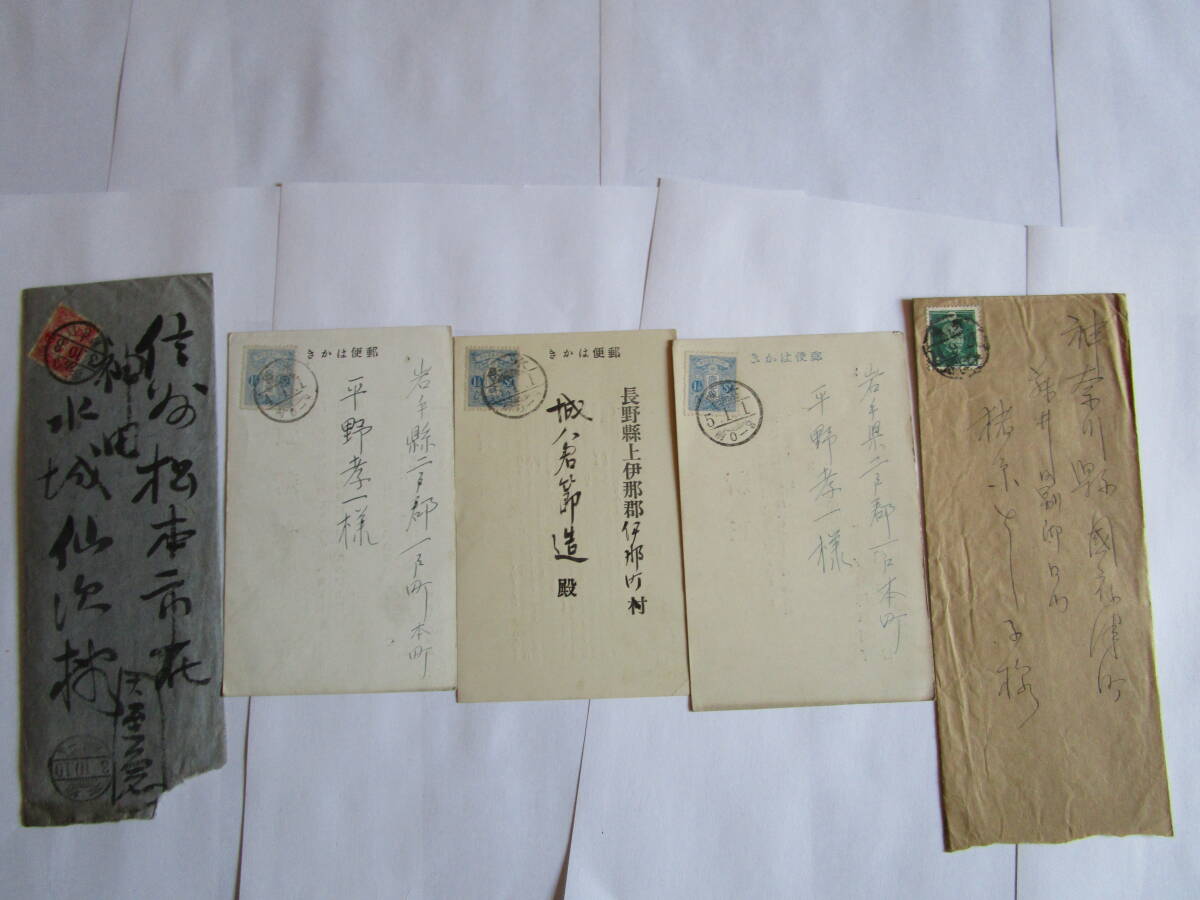 信州松本市在
神田
水城仙次様
3.10.10
郵便はがき
1½
岩手縣二戸郡一戸町本町
平野孝一様
郵便はがき
1½
長野縣上伊那郡伊那町村
城倉節造殿
郵便はがき
1½
5.1.1
岩手県二戸郡一戸本町
平野孝一様
神奈川縣國府津町